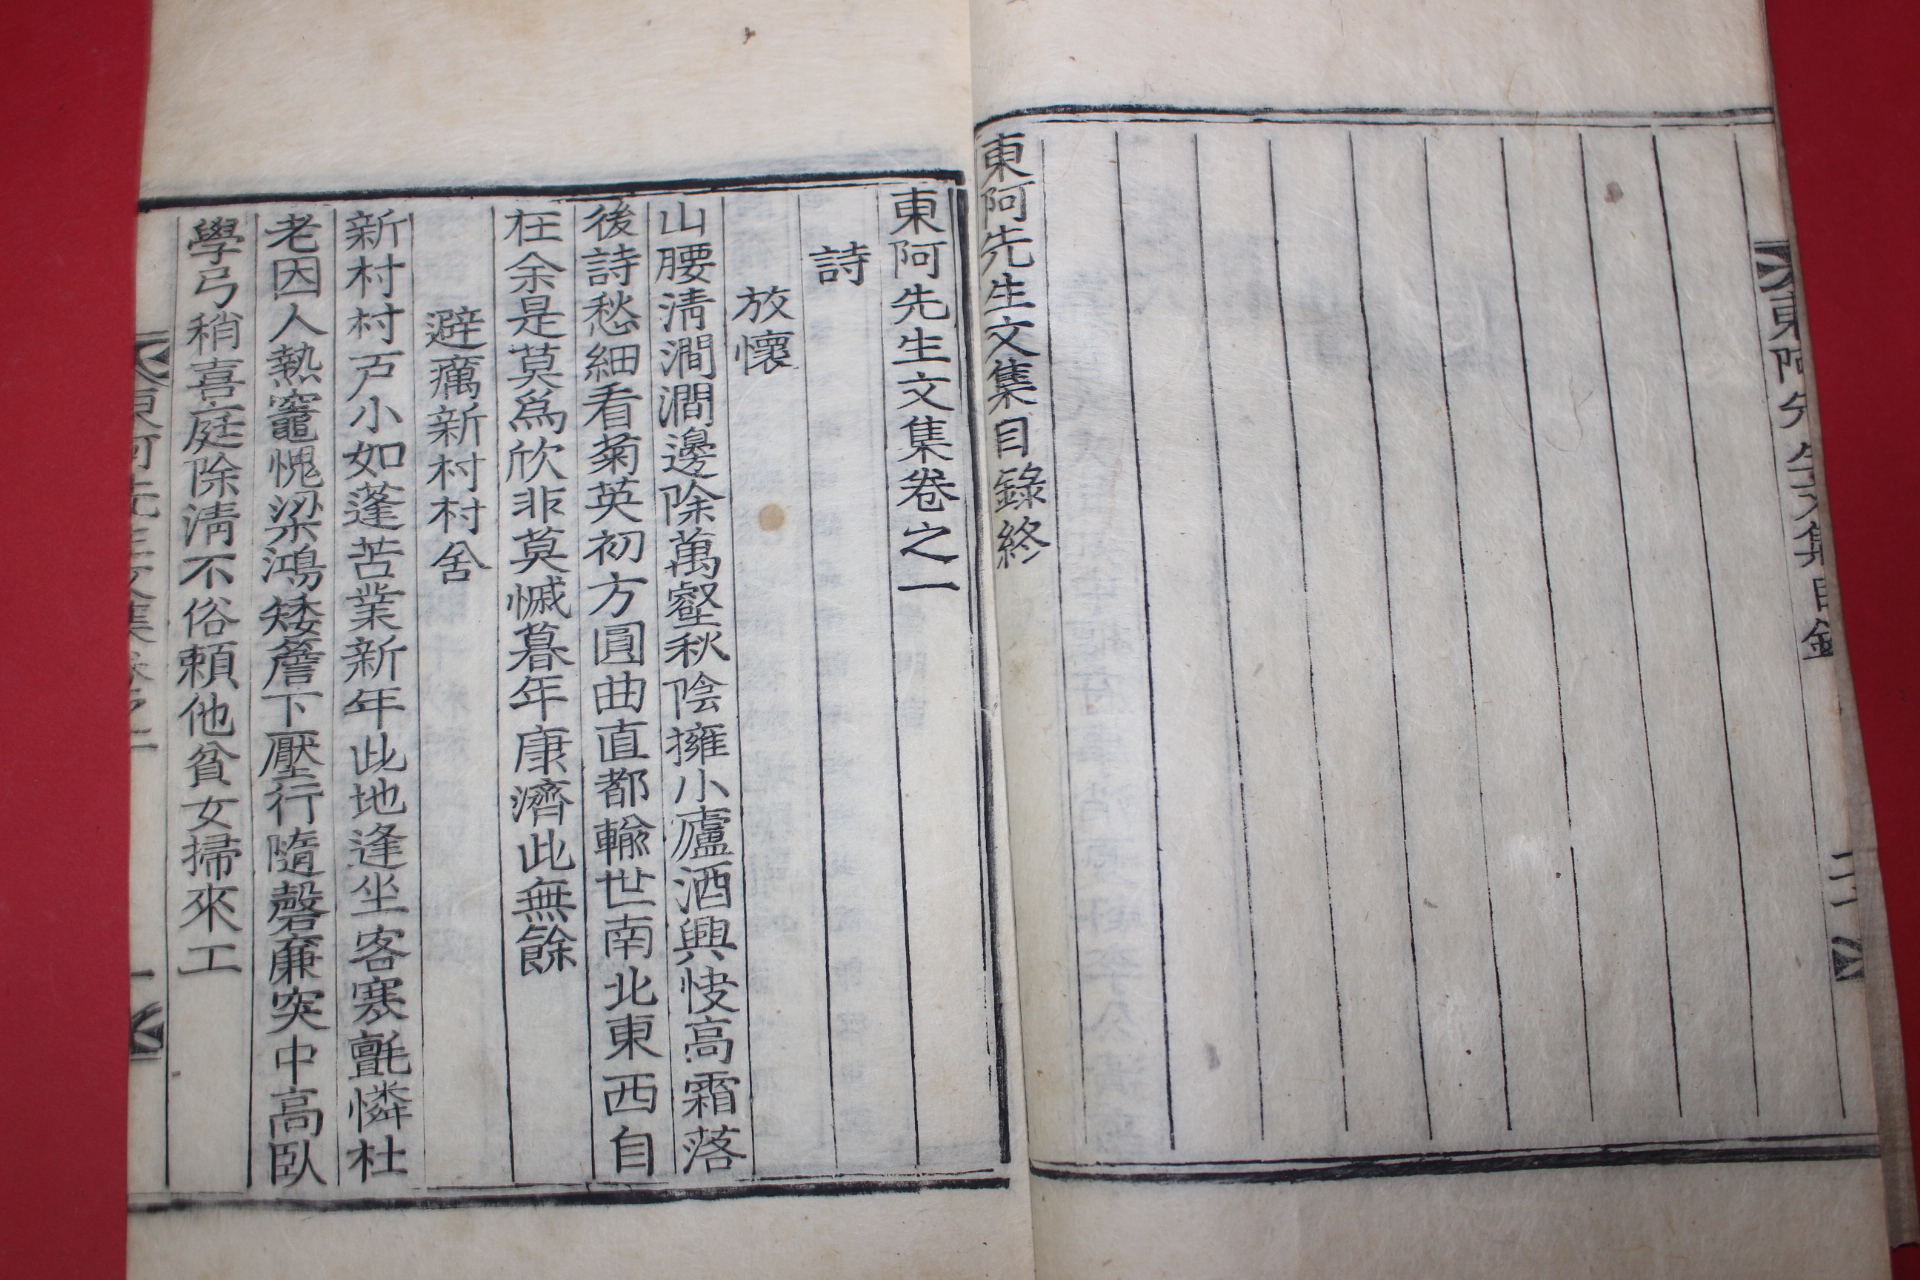 東阿先生文集目錄
二
東阿先生文集目錄終
東阿先生文集卷之一
詩
放懷
山腰淸澗澗邊除萬壑秋陰擁小廬酒興恔高霜落
後詩愁細看菊英初方圓曲直都輸世南北東西自
在余是莫爲欣非莫慽暮年康濟此無餘
避癘新村村舍
新村村戶小如蓬苦業新年此地逢坐客寒氈憐杜
老因人熱竈愧梁鴻矮簷下壓行隨磬廉突中高臥
學弓稍喜庭除淸不俗賴他貧女掃來工
東阿先生文集卷之一
一